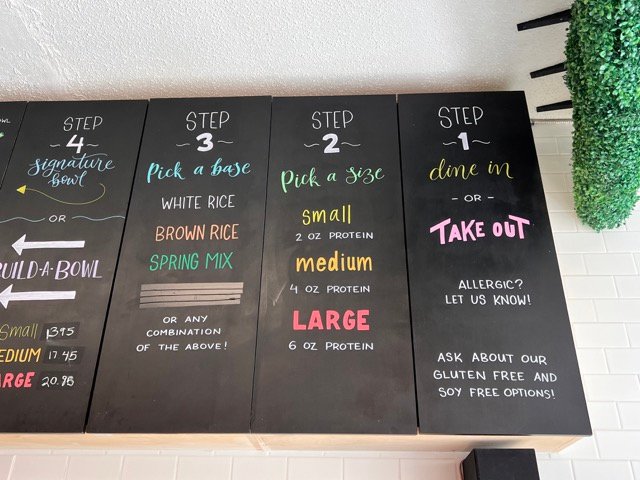 STEP
~1~
dine in
- OR -
TAKE OUT
ALLERGIC?
LET US KNOW!
ASK ABOUT OUR
GLUTEN FREE AND
SOY FREE OPTIONS!
STEP
~2~
Pick a size
small
2 OZ PROTEIN
medium
4 OZ PROTEIN
LARGE
6 OZ PROTEIN
STEP
~3~
Pick a base
WHITE RICE
BROWN RICE
SPRING MIX
OR ANY
COMBINATION
OF THE ABOVE!
STEP
~4~
signature
bowl
OR
UILD-A-BOWL
Small 13.95
EDIUM 17.45
ARGE 20.95